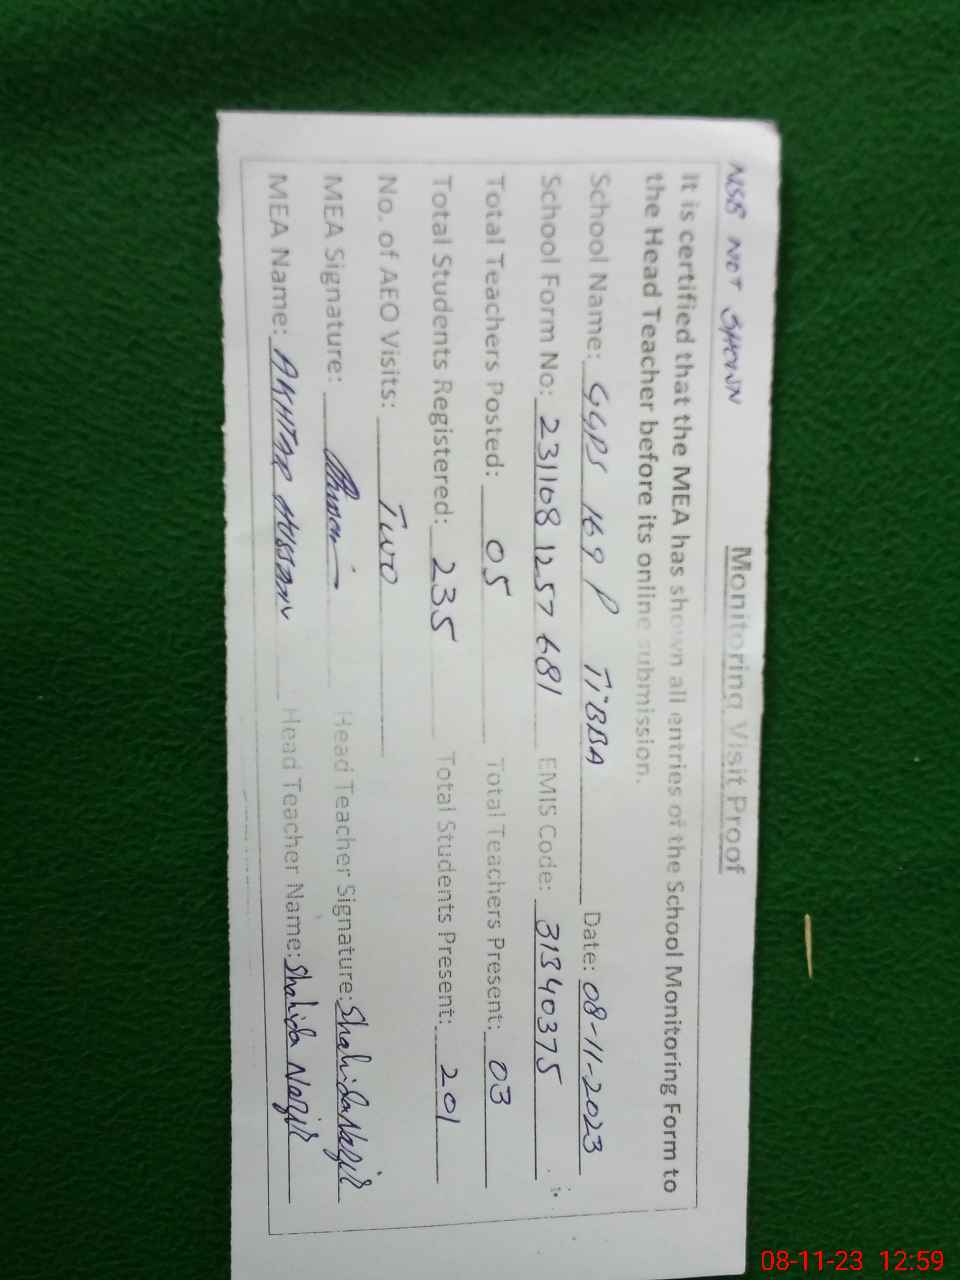 NSB NOT SHOWN
Monitoring Visit Proof
It is certified that the MEA has shown all entries of the School Monitoring Form to
the Head Teacher before its online submission.
School Name: GGPS 169 P TiBBA Date: 08-11-2023
School Form No: 231108 1257 681 EMIS Code: 31340375
Total Teachers Posted: 05 Total Teachers Present: 03
Total Students Registered: 235 Total Students Present: 201
No. of AEO Visits: Two
MEA Signature: Head Teacher Signature: Shahida Nazir
MEA Name: AKHTAR HUSSAIN Head Teacher Name: Shahida Nazir
08-11-23 12:59